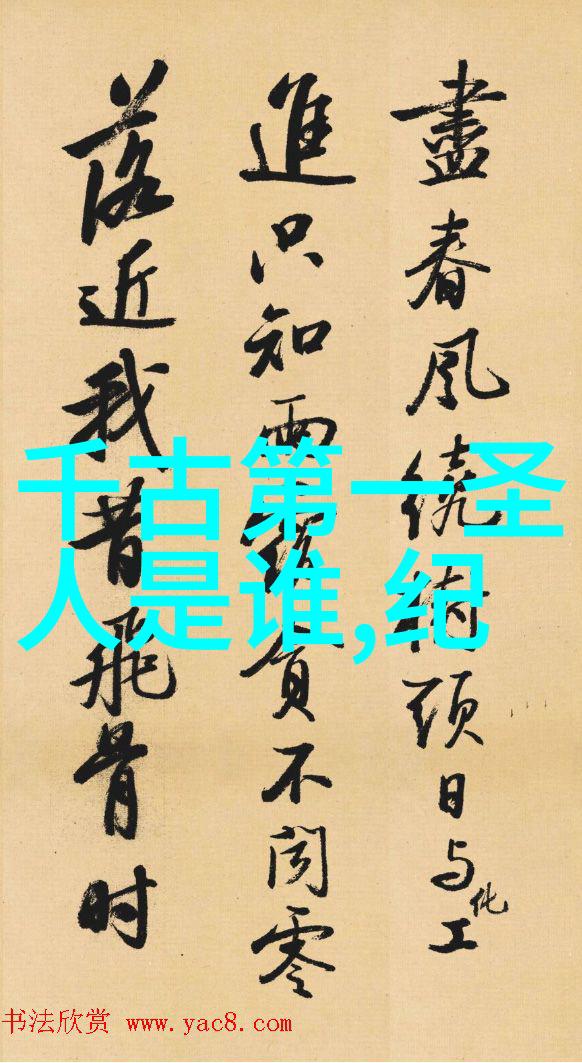 盡春風繞樹頭日与化工
進只知雨露貪不聞零
落近我昔飛骨时
千古第一圣
人是谁,纪
书法欣赏 www.yac8.com